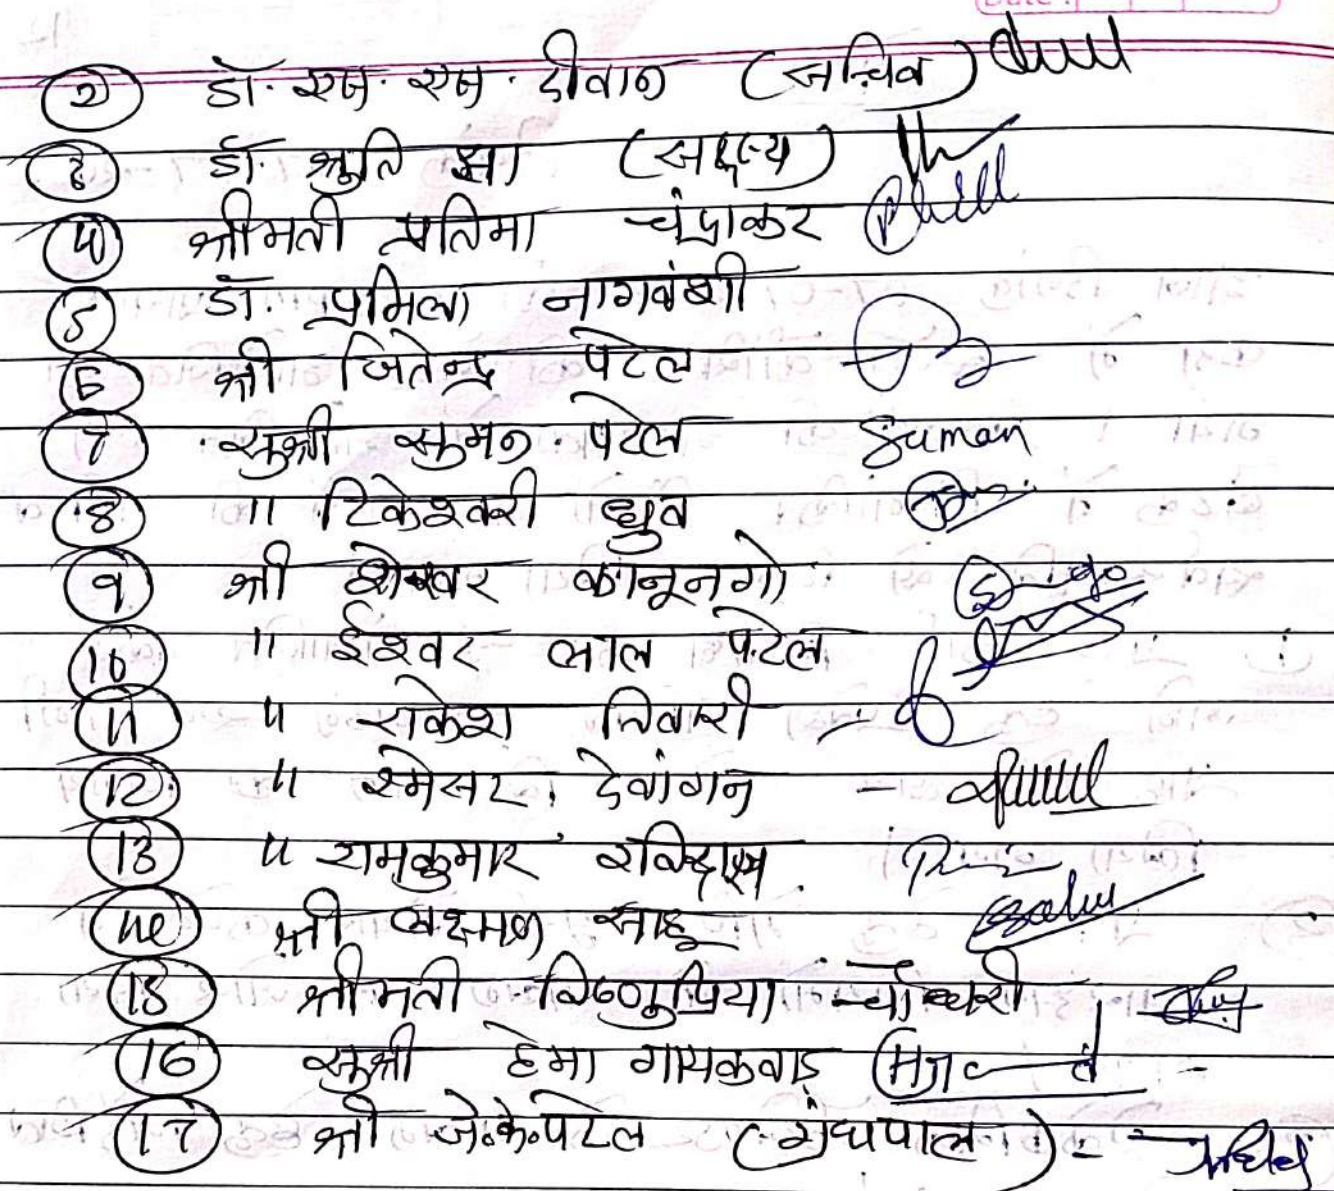 ② डॉ. एस. एस. दीवान (सचिव)
③ डॉ. श्रुति झा (सदस्य)
④ श्रीमती प्रतिमा चंद्राकर
⑤ डॉ. प्रमिला नागवंशी
⑥ श्री जितेन्द्र पटेल
⑦ सुश्री सुमन पटेल Suman
⑧ " टिकेश्वरी ध्रुव
⑨ श्री शेखर कानूनगो
⑩ " ईश्वर लाल पटेल
⑪ " राकेश तिवारी -
⑫ " रमेसर देवांगन -
⑬ " रामकुमार रविदास
⑭ श्री लक्ष्मण साहू Sahu
⑮ श्रीमती विष्णुप्रिया चौधरी
⑯ सुश्री हेमा गायकवाड़
⑰ श्री जे.के.पटेल (ग्रंथपाल) -